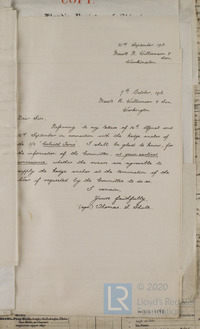 COPY.
September 191
Messrs R. Williamson & Son
Workington
9th October 191
Messrs R. Williamson & Son,
Workington
Dear Sirs,
Referring to my letters of 16th August and
September in connection with the wedge anchor of
the S/S I shall be glad to know, for
the information of the Committee, at your earliest
convenience whether the owners are agreeable to
supply the wedge anchor at the termination of the
if requested by the Committee to do so.
I remain,
Yours faithfully
(sgd) Thomas
© 2020
LR
Lloyd's Register